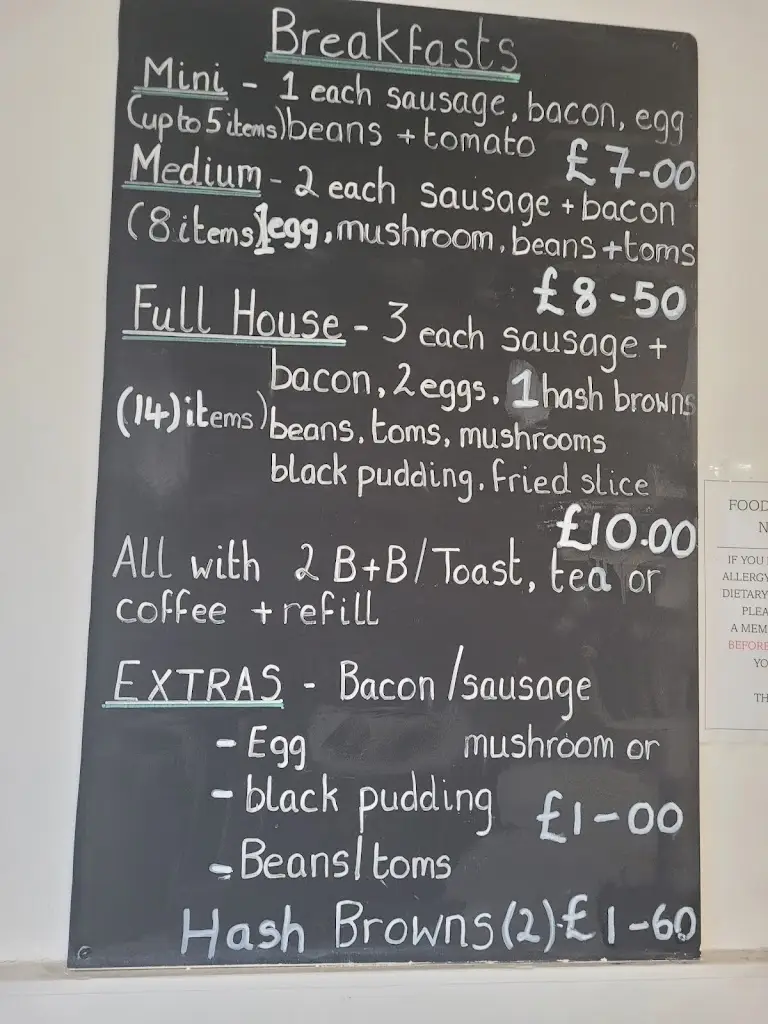 Breakfasts
Mini - 1 each sausage, bacon, egg
(up to 5 items) beans + tomato £7-00
Medium - 2 each sausage + bacon
(8 items) 1 egg, mushroom, beans + toms
£8-50
Full House - 3 each sausage +
bacon, 2 eggs, 1 hash browns
(14) items) beans, toms, mushrooms
black pudding, fried slice
£10.00
All with 2 B+B/Toast, tea or
coffee + refill
EXTRAS - Bacon/sausage
- Egg mushroom or
- black pudding £1-00
- Beans/toms
Hash Browns (2) £1-60
FOOD
IF YOU
ALLERGY
DIETARY
A MEM
BEFORE
YO
TH